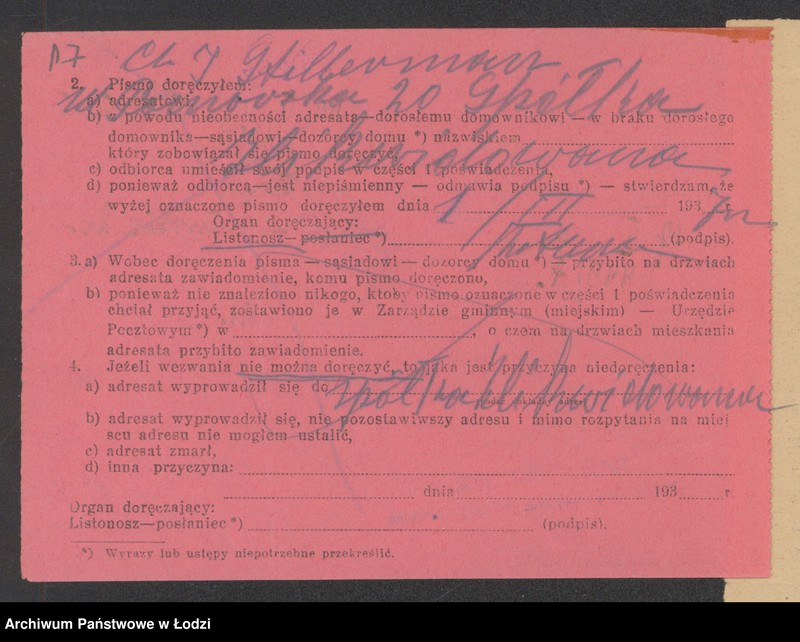 D7
Ch J Stillerman
2. Pismo doręczyłem:
a) adresatowi,
20 Spółka
b) z powodu nieobecności adresata—dorosłemu domownikowi — w braku dorosłego
domownika—sąsiadowi—dozorcy domu *) nazwiskiem
który zobowiązał się pismo doręczyć,
zlikwidowana
c) odbiorca umieścił swój podpis w części 1 poświadczenia,
d) ponieważ odbiorca—jest niepiśmienny — odmawia podpisu *) — stwierdzam, że
wyżej oznaczone pismo doręczyłem dnia 1/VII 193 7 r.
Organ doręczający:
Listonosz—posłaniec*) (podpis).
3. a) Wobec doręczenia pisma — sąsiadowi — dozorcy domu *) — przybito na drzwiach
adresata zawiadomienie, komu pismo doręczono,
b) ponieważ nie znaleziono nikogo, ktoby pismo oznaczone w części 1 poświadczenia
chciał przyjąć, zostawiono je w Zarządzie gminnym (miejskim) — Urzędzie
Pocztowym *) w , o czem na drzwiach mieszkania
adresata przybito zawiadomienie.
4. Jeżeli wezwania nie można doręczyć, to jaka jest przyczyna niedoręczenia:
a) adresat wyprowadził się do spółka zlikwidowana
b) adresat wyprowadził się, nie pozostawiwszy adresu i mimo rozpytania na miej
scu adresu nie mogłem ustalić,
c) adresat zmarł,
d) inna przyczyna:
dnia 193 r.
Organ doręczający:
Listonosz—posłaniec *) (podpis).
*) Wyrazy lub ustępy niepotrzebne przekreślić.
Archiwum Państwowe w Łodzi